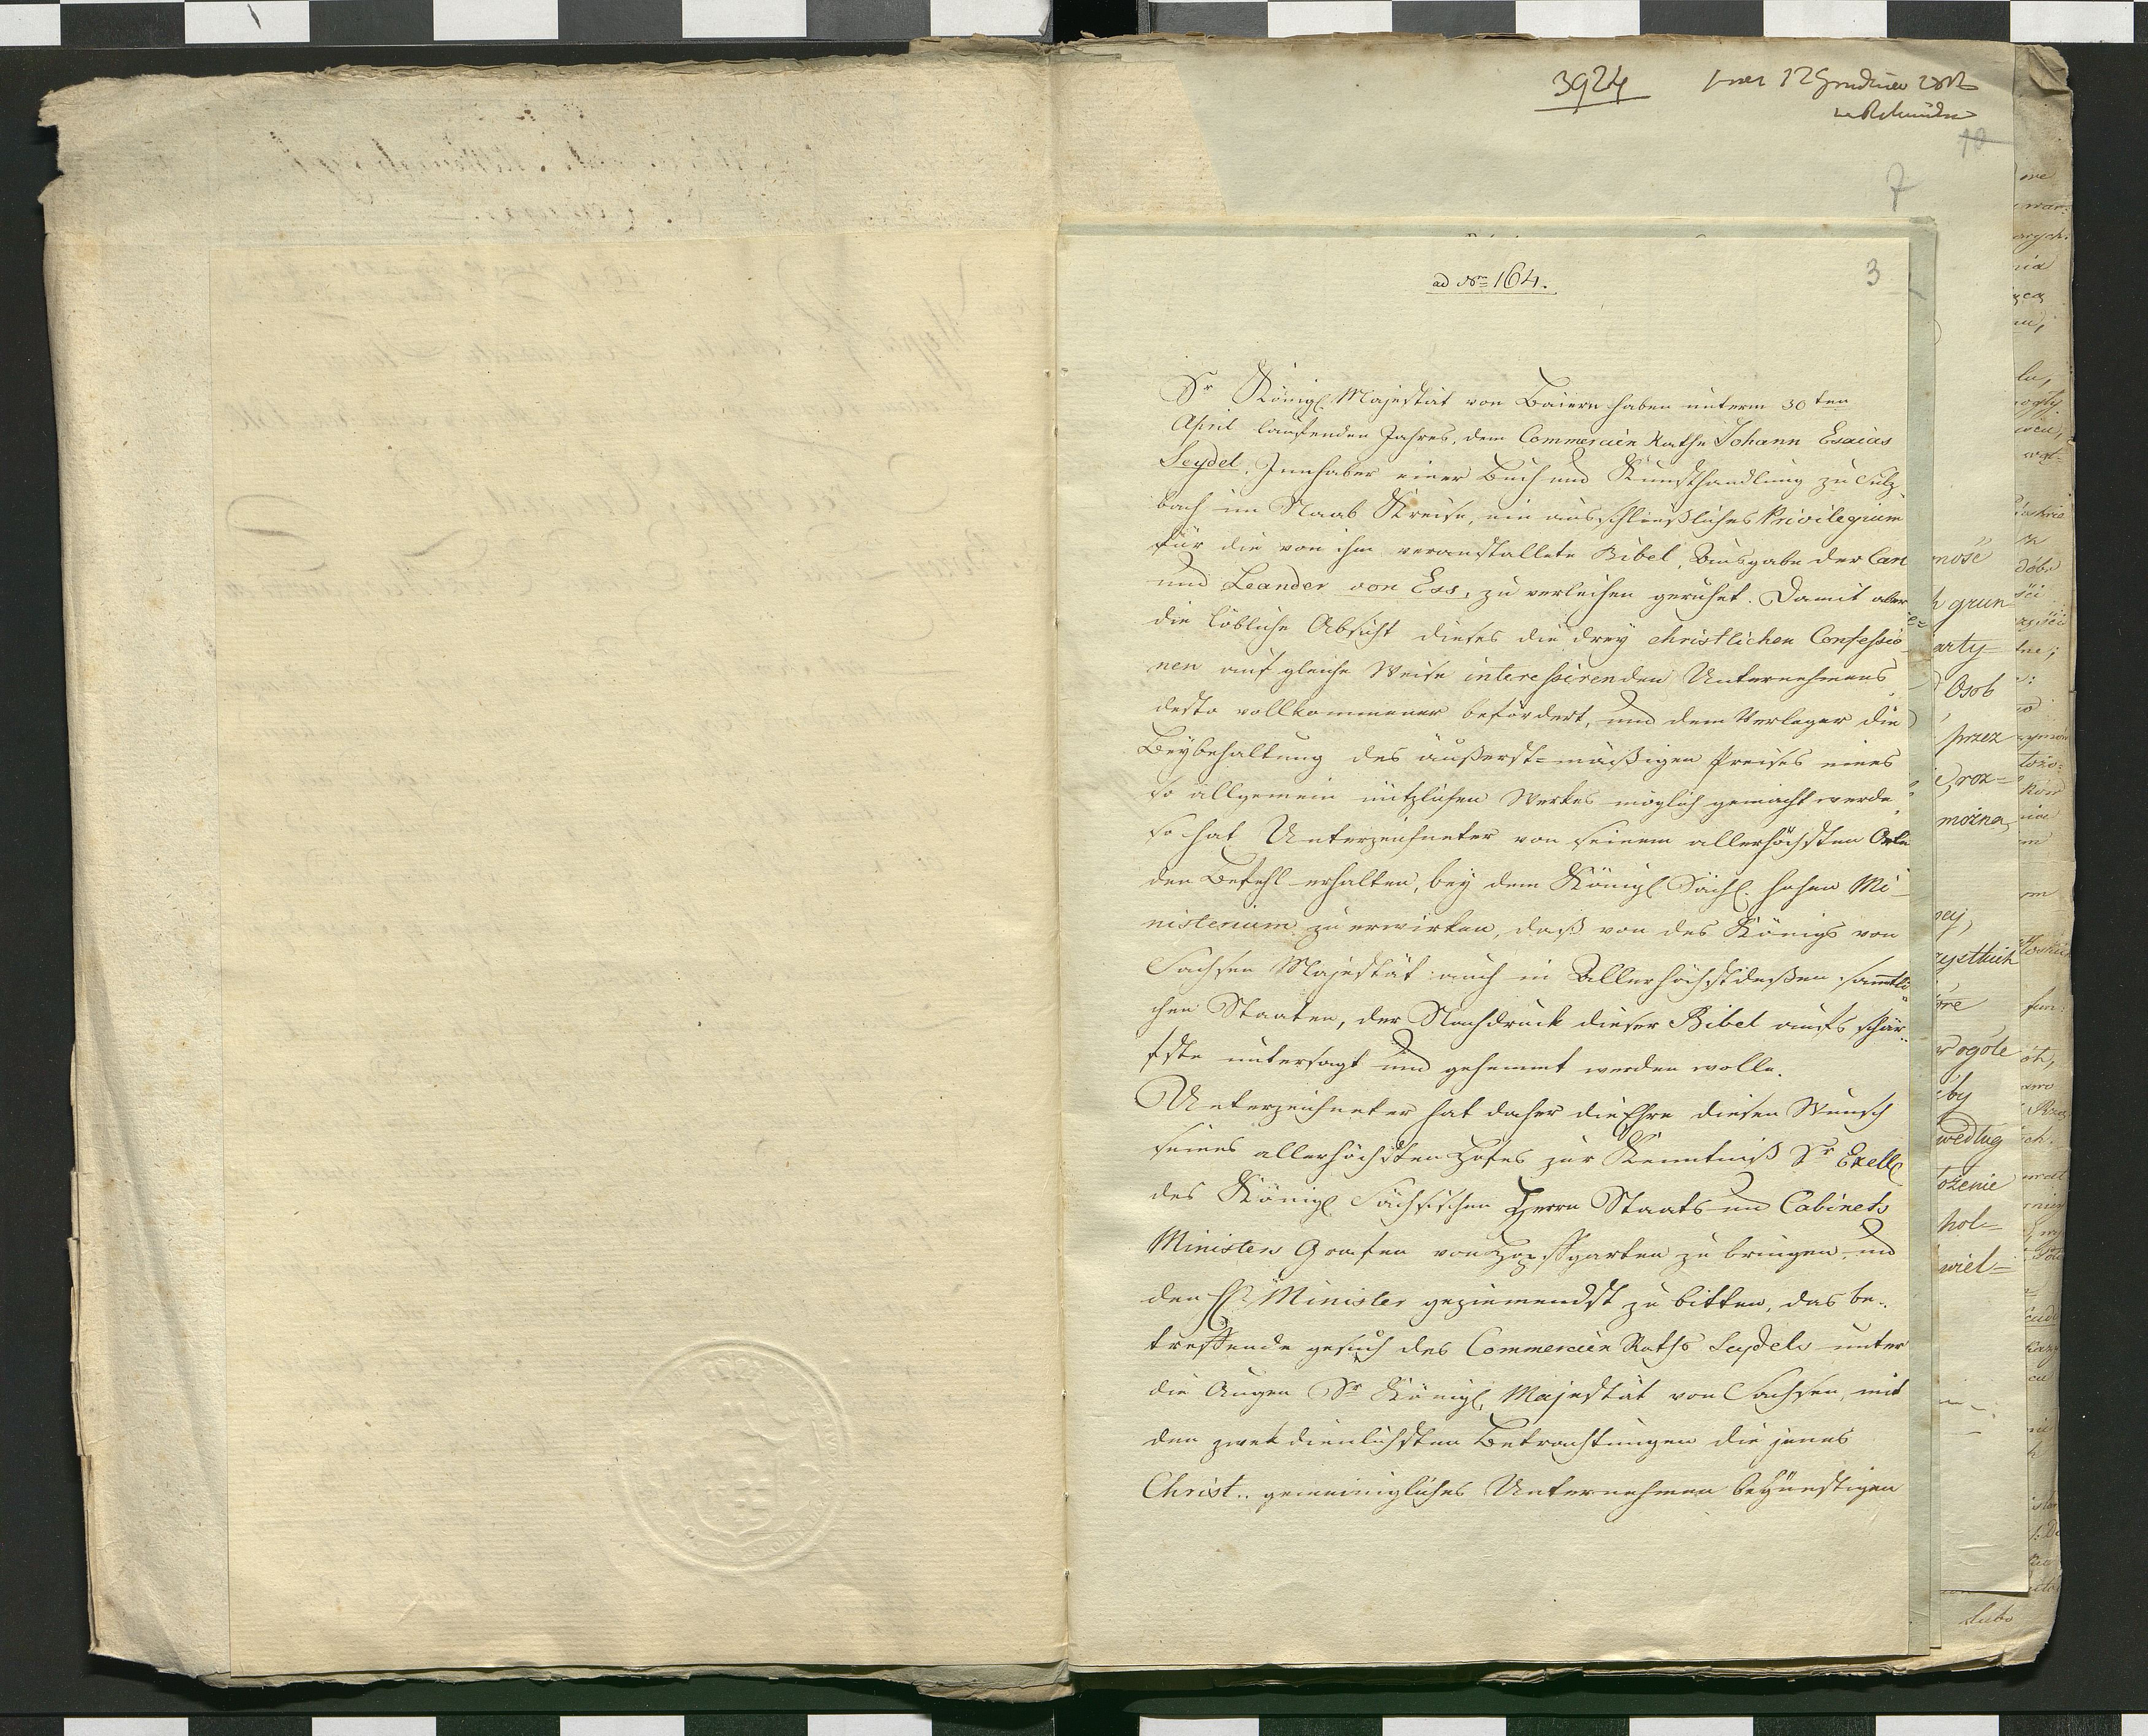 3924
12 Grudnia
10
7
ad Nrm 164.
3
Sr Königl. Majestät von Baiern haben unterm 30ten
April laufenden Jahres, dem Commercien Rathe Johann Esaias
Seydel, Innhaber einer Buch und Kunsthandlung zu Sulz-
bach im Naab Kreise, ein ausschließliches Privilegium
für die von ihm veranstaltete Bibel, Ausgabe der Carl
und Leander von Ess, zu verleihen geruhet. Damit aber
die löbliche Absicht dieses die drey christlichen Confessio-
nen auf gleiche Weise interessirenden Unternehmens
desto vollkommener befördert, und dem Verleger die
Beybehaltung des äußerst=mäßigen Preises eines
so allgemein nützlichen Werkes möglich gemacht werde,
so hat Unterzeichneter von seinem allerhöchsten Orte
den Befehl erhalten, bey dem Königl. Sächs. hohen Mi-
nisterium zu erwirken, daß von des Königs von
Sachsen Majestät auch in Allerhöchstdeßen sämtli-
chen Staaten, der Nachdruck dieser Bibel aufs schär-
fste untersagt und gehemmt werden wolle.
Unterzeichneter hat daher die Ehre diesen Wunsch
seines allerhöchsten Hofes zur Kenntniß Sr Exell.
des Königl. Sächsischen Herrn Staats und Cabinets
Ministers Grafen von Hopffgarten zu bringen, und
den H. Minister geziemendst zu bitten, das be-
treffende gesuch des Commercien Raths Seydels unter
die Augen Sr Königl. Majestät von Sachsen, mit
den zwekdienlichsten Betrachtungen die jenes
Christ.. gemeinigliches Unternehmen begünstigen
grun=
arty=
Osob
przez
roz=
można
ogole
by
według
ożenie
hol=
wiel=